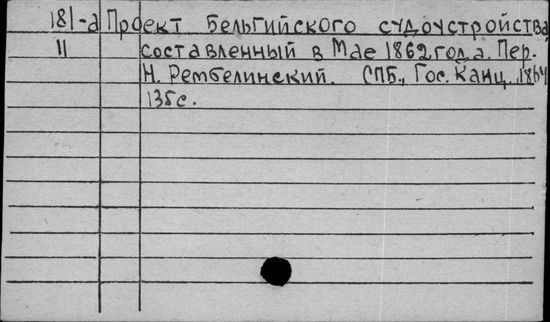 181-а Проект Бельгийского судоустройства
11 составленный в Мае 1862 года. Пер.
Н. Рембелинский. СПБ., Гос. Канц. 1864
135с.